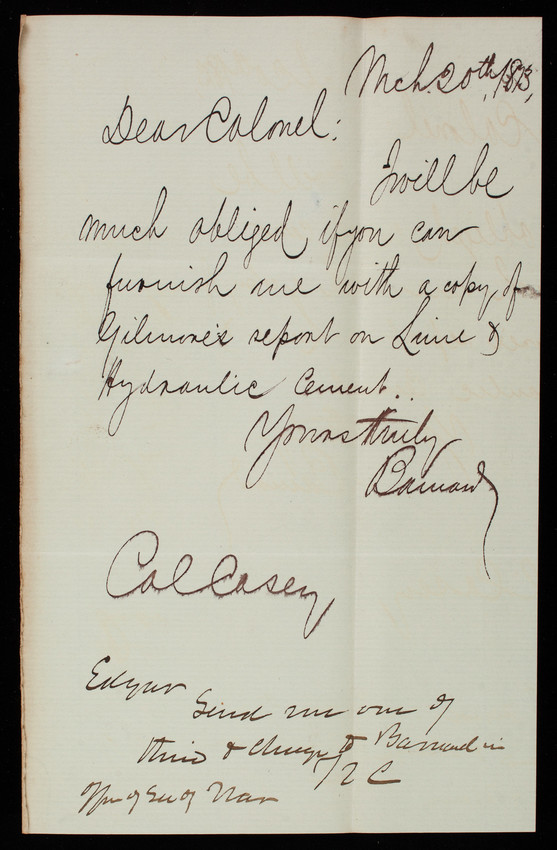 Mch. 20th, 1873,
Dear Colonel:
I will be
much obliged if you can
furnish me with a copy of
Gilmore's report on Lime &
Hydraulic Cement..
Yours truly
Barnard
Col Casey
Edgar
Send me one of
this & charge to Barnard in
Offi of Sec of War
TLC